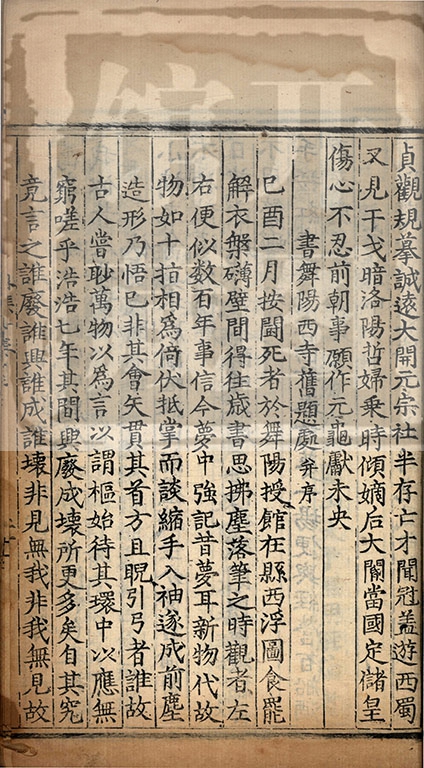 貞觀規摹誠遠大開元宗社半存亡才聞冠盖游西蜀
又見干戈暗洛陽哲婦乗時傾嫡后大閽當國定儲皇
傷心不忍前朝事願作元龜獻未央
書舞陽西寺舊題處并序
巳酉二月按鬭死者於舞陽授館在縣西浮圖食罷
解衣槃礴壁間得往歲書思拂塵落筆之時觀者左
右便似數百年事信今夢中強記昔夢耳新物代故
物如十指相爲倚伏抵掌而談縮手入袖遂成前塵
造形乃悟巳非其會矢貫其首方且睨引弓者誰故
古人嘗眇萬物以為言以謂樞始待其環中以應無
窮嗟乎浩浩七年其間興廢成壞所更多矣自其究
竟言之誰廢誰興誰成誰壞非見無我非我無見故